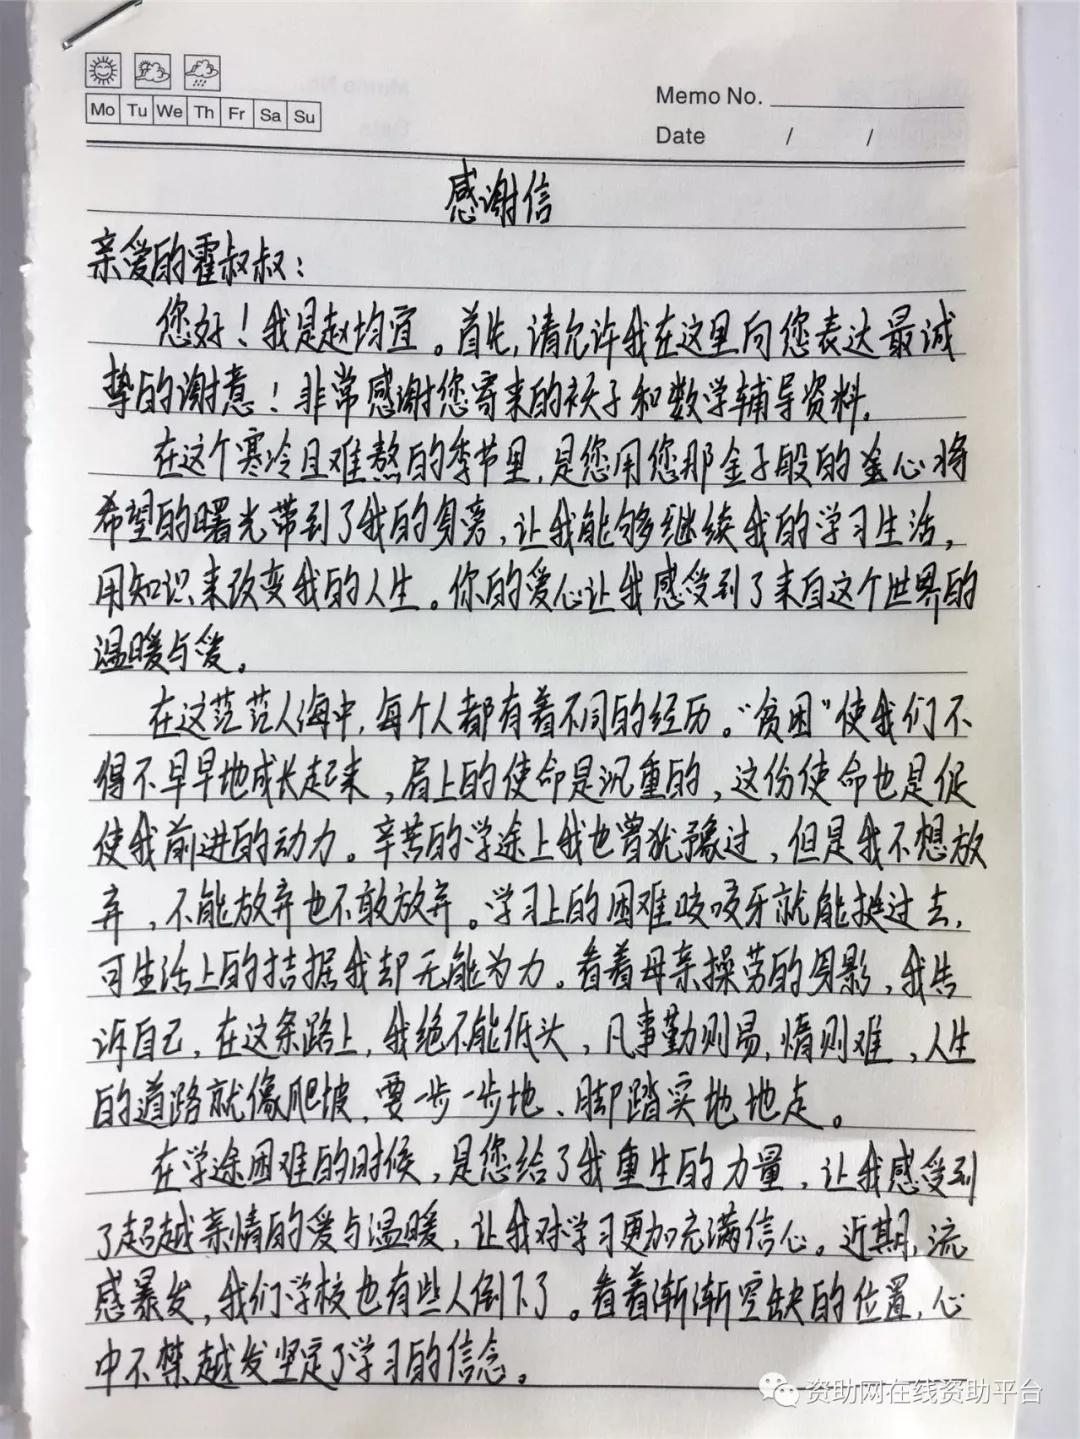 Mo Tu We Th Fr Sa Su
Memo No.
Date / /
感谢信
亲爱的霍叔叔：
您好！我是赵均宜。首先，请允许我在这里向您表达最诚
挚的谢意！非常感谢您寄来的袄子和数学辅导资料。
在这个寒冷且难熬的季节里，是您用您那金子般的金心将
希望的曙光带到了我的身旁，让我能够继续我的学习生活，
用知识来改变我的人生。你的爱心让我感受到了来自这个世界的
温暖与爱。
在这茫茫人海中，每个人都有着不同的经历。“贫困”使我们不
得不早早地成长起来，肩上的使命是沉重的，这份使命也是促
使我前进的动力。辛苦的学途上我也曾犹豫过，但是我不想放
弃，不能放弃也不敢放弃。学习上的困难咬咬牙就能挺过去，
可生活上的拮据我却无能为力。看着母亲操劳的身影，我告
诉自己，在这条路上，我绝不能低头，凡事勤则易，惰则难，人生
的道路就像爬坡，要一步一步地、脚踏实地地走。
在学途困难的时候，是您给了我重生的力量，让我感受到
了超越亲情的爱与温暖，让我对学习更加充满信心。近期，流
感暴发，我们学校也有些人倒下了。看着渐渐空缺的位置，心
中不禁越发坚定了学习的信念。
资助网在线资助平台